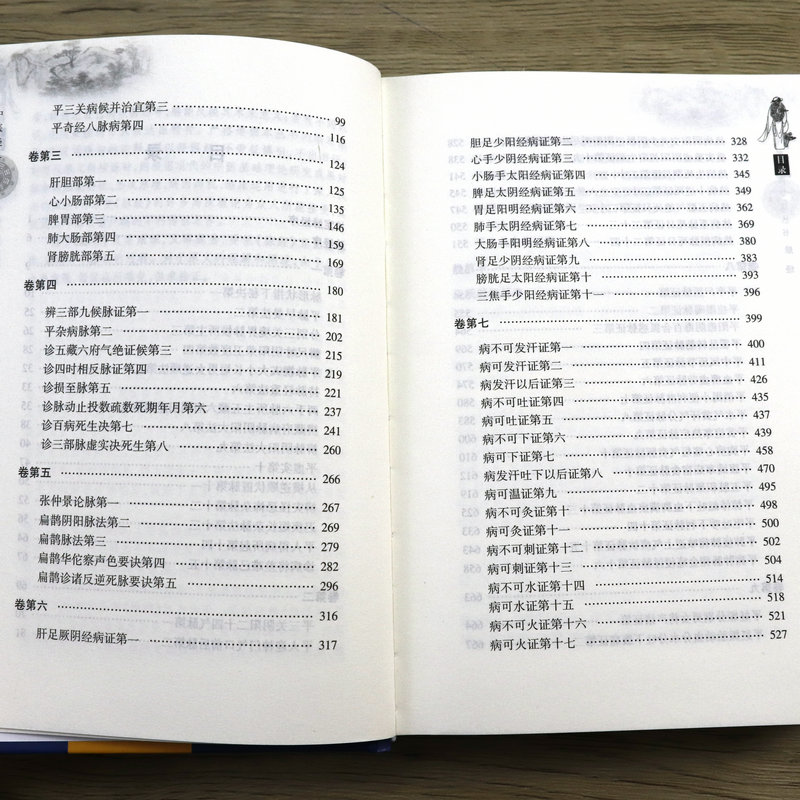 平三关病候并治宜第三 99
平奇经八脉病第四 116
卷第三 124
肝胆部第一 125
心小肠部第二 135
脾胃部第三 146
肺大肠部第四 159
肾膀胱部第五 169
卷第四 180
辨三部九候脉证第一 181
平杂病脉第二 202
诊五藏六府气绝证候第三 215
诊四时相反脉证第四 219
诊损至脉第五 221
诊脉动止投数疏数死期年月第六 237
诊百病死生决第七 241
诊三部脉虚实决死生第八 260
卷第五 266
张仲景论脉第一 267
扁鹊阴阳脉法第二 269
扁鹊脉法第三 279
扁鹊华佗察声色要诀第四 282
扁鹊诊诸反逆死脉要诀第五 296
卷第六 316
肝足厥阴经病证第一 317
目录
胆足少阳经病证第二 328
心手少阴经病证第三 332
小肠手太阳经病证第四 345
脾足太阴经病证第五 349
胃足阳明经病证第六 362
肺手太阴经病证第七 369
大肠手阳明经病证第八 380
肾足少阴经病证第九 383
膀胱足太阳经病证第十 393
三焦手少阳经病证第十一 396
卷第七 399
病不可发汗证第一 400
病可发汗证第二 411
病发汗以后证第三 426
病不可吐证第四 435
病可吐证第五 437
病不可下证第六 439
病可下证第七 458
病发汗吐下以后证第八 470
病可温证第九 495
病不可灸证第十 498
病可灸证第十一 500
病不可刺证第十二 502
病可刺证第十三 504
病不可水证第十四 514
病可水证第十五 518
病不可火证第十六 521
病可火证第十七 527